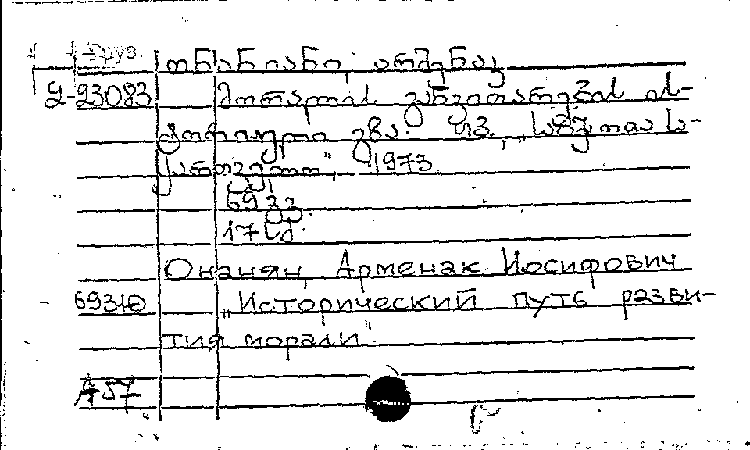 Груз.
ონანიანი, არმენაკ
2-23083 მორალის განვითარების ის-
ტორიული გზა. თბ., „საბჭოთა სა-
ქართველო", 1973.
69 გვ.
17 კ.
Онанян, Арменак Иосифович
69310 „Исторический путь разви-
тия морали"
A57